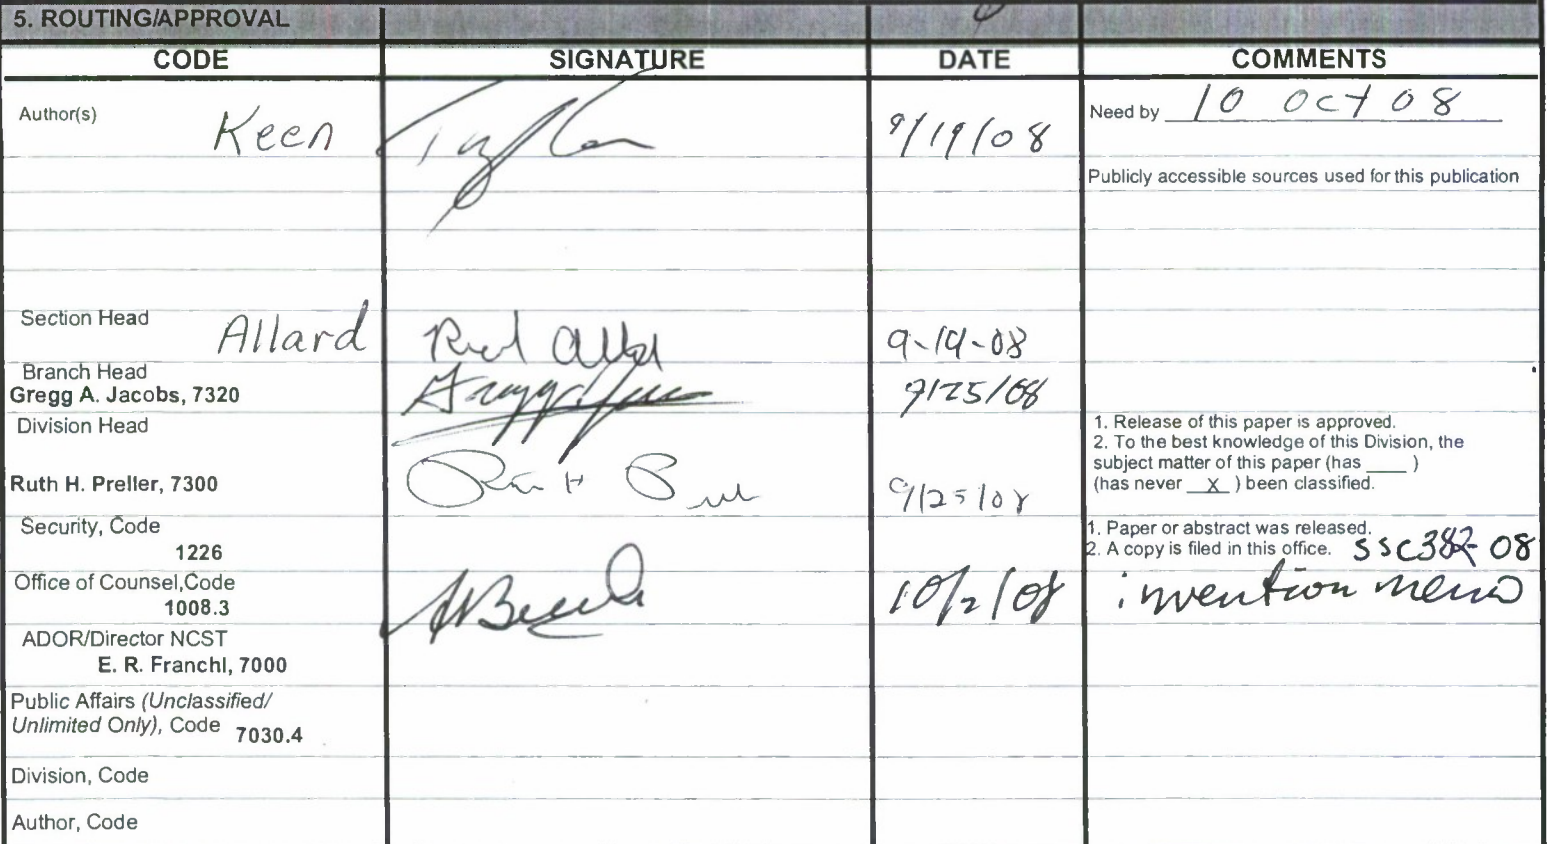 5. ROUTING/APPROVAL
CODE SIGNATURE DATE COMMENTS
Author(s) Keen 9/19/08 Need by 10 Oct 08
Publicly accessible sources used for this publication
Section Head Allard 9-19-08
Branch Head
Gregg A. Jacobs, 7320 9/25/08
Division Head
1. Release of this paper is approved.
2. To the best knowledge of this Division, the
subject matter of this paper (has ____ )
(has never __X__ ) been classified.
Ruth H. Preller, 7300 9/25/08
Security, Code
1226
1. Paper or abstract was released.
2. A copy is filed in this office. SSC382-08
Office of Counsel,Code
1008.3 10/2/08 invention memo
ADOR/Director NCST
E. R. Franchi, 7000
Public Affairs (Unclassified/
Unlimited Only), Code 7030.4
Division, Code
Author, Code